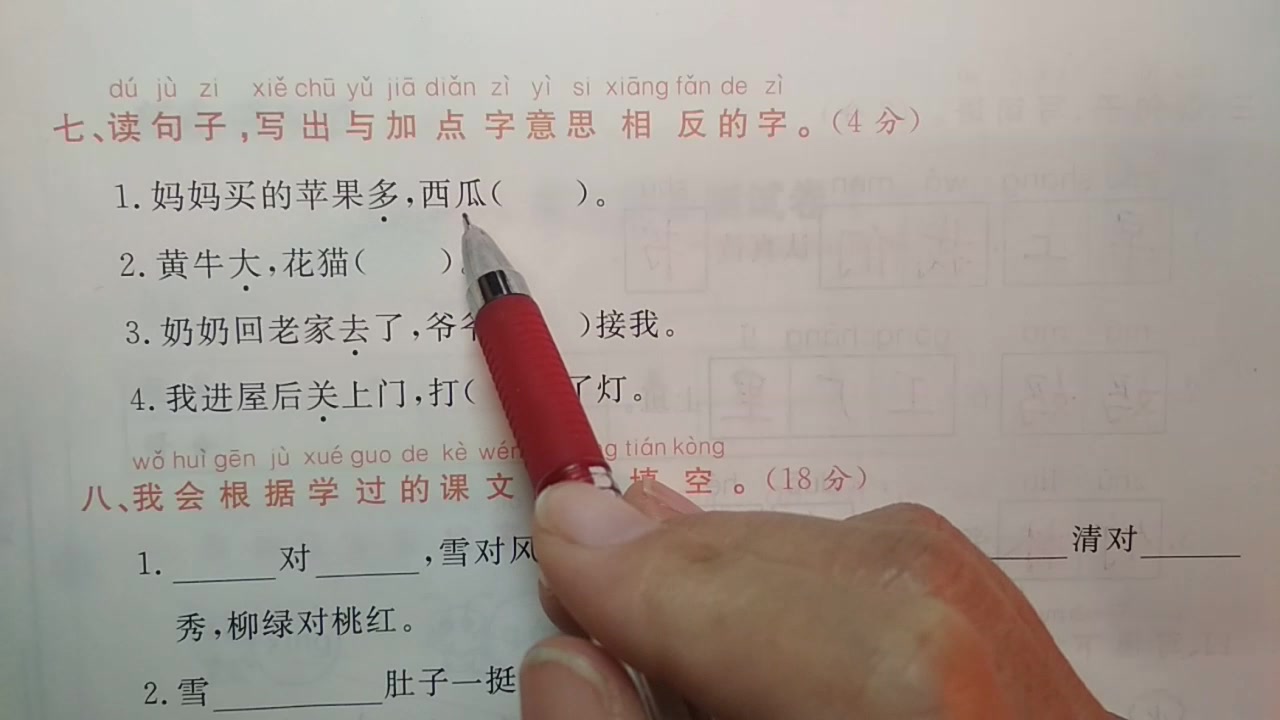 dú jù zi xiě chū yǔ jiā diǎn zì yì si xiāng fǎn de zì
七、读句子,写出与加点字意思相反的字。(4分)
1. 妈妈买的苹果多,西瓜(    )。
2. 黄牛大,花猫(    )
3. 奶奶回老家去了,爷    )接我。
4. 我进屋后关上门,打(    了灯。
wǒ huì gēn jù xué guo de kè wén tián kòng
八、我会根据学过的课文 填空。(18分)
1. ______对______,雪对风 ______清对______
秀,柳绿对桃红。
2. 雪__________肚子一挺